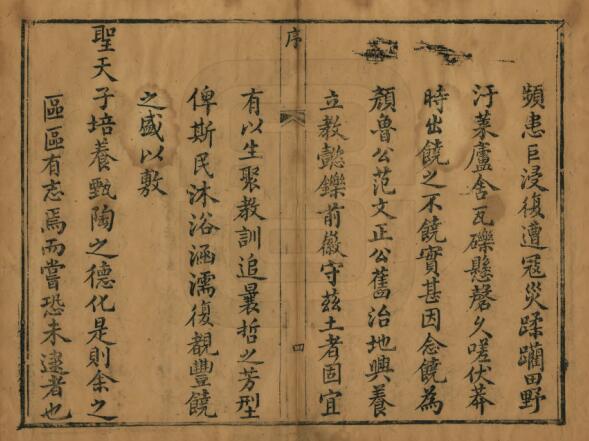 頻患巨浸復遭冦災蹂躪田野
汙萊廬舍瓦礫懸磬久嗟伏莽
時出饒之不饒實甚因念饒為
顏魯公范文正公舊治地興養
立教懿鑠前徽守茲土者固宜
序
四
有以生聚教訓追曩哲之芳型
俾斯民沐浴涵濡復覩豐饒
之盛以敷
聖天子培養甄陶之德化是則余之
區區有志焉而嘗恐未逮者也